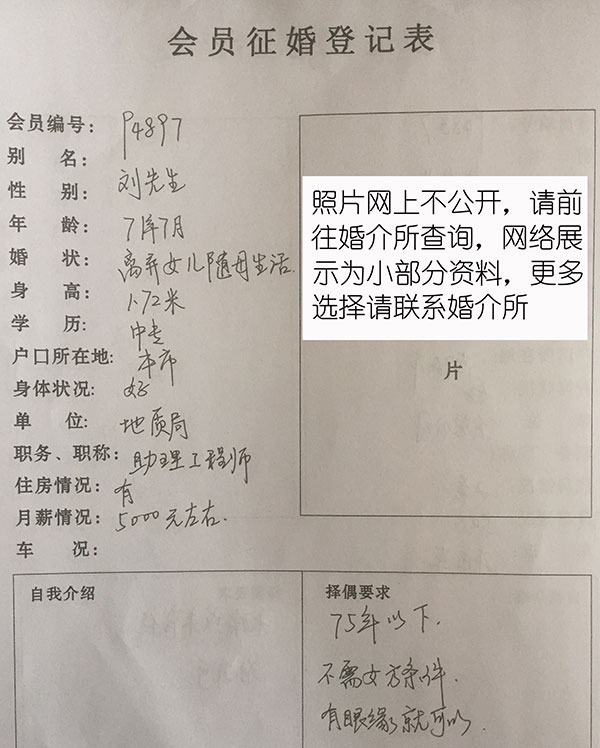 会员征婚登记表
会员编号：P4897
别 名：
性 别：刘先生
年 龄：71年7月
婚 状：离弃女儿随母生活.
身 高：1.72米
学 历：中专
户口所在地：本市
身体状况：好
单 位：地质局
职务、职称：助理工程师
住房情况：有
月薪情况：5000元左右.
车 况：
照片网上不公开，请前
往婚介所查询，网络展
示为小部分资料，更多
选择请联系婚介所
片
自我介绍
择偶要求
75年以下.
不需女方条件.
有眼缘就可以.